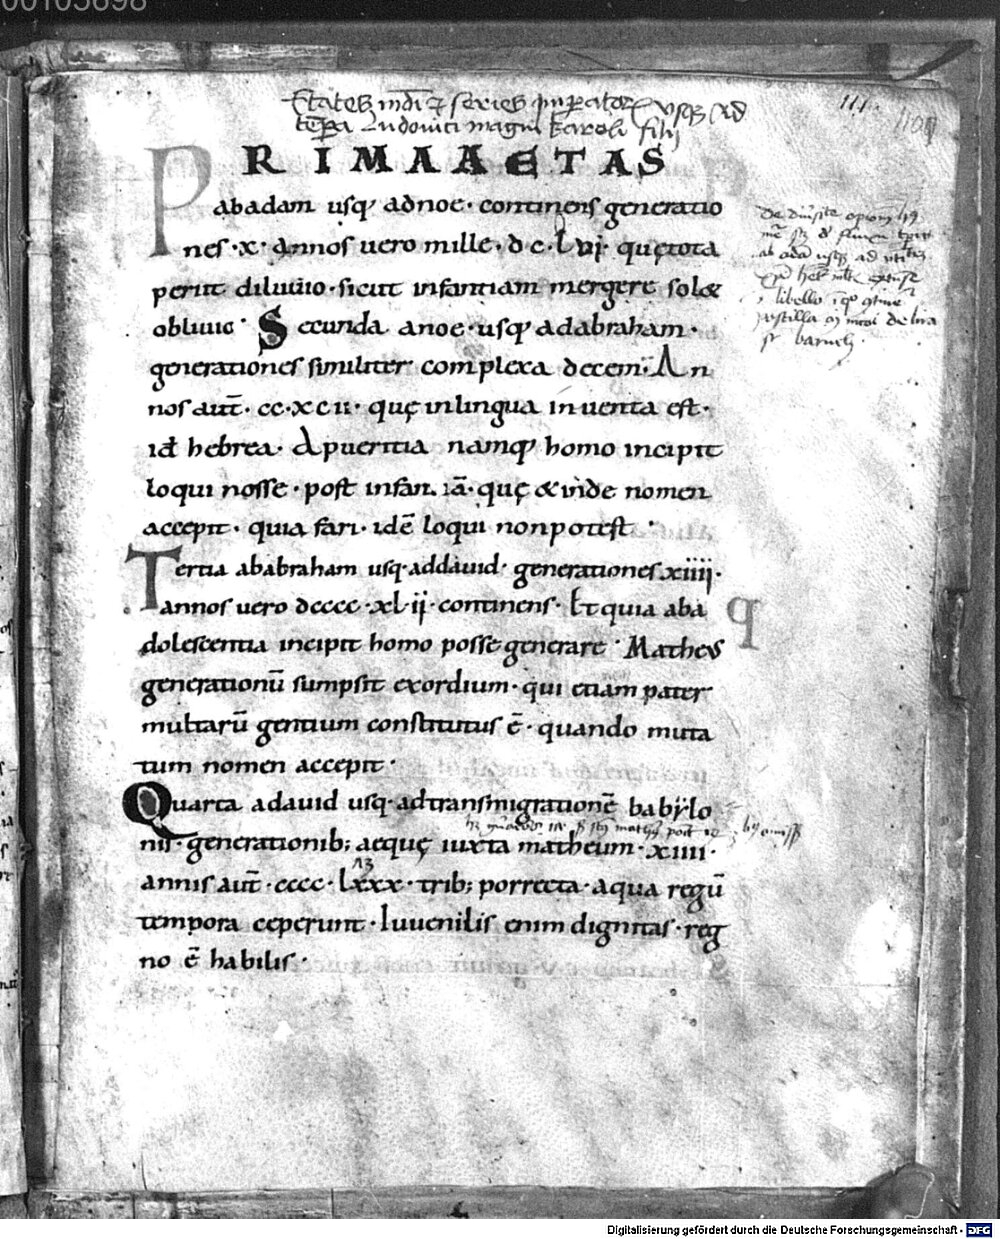 00105698
Etates mdi et series imperator usque ad
tempora Ludouici magni karoli filij
111.
PRIMA AETAS
abadam usq; adnoe· continens generatio
nes·x· annos uero mille·dc·lvj· quę tota
periit diluuio·sicut infantiam mergere sol&
obliuio· Secunda anoe·usq; adabraham·
generationes similiter complexa decem· An
nos aut̄·cc·xcii· quę inlingua inuenta est·
id hebrea· Apueritia namq; homo incipit
loqui nosse·post infantiā·quę &inde nomen
accepit· quia fari·idē loqui nonpotest·
Tertia ababraham usq·addauid· generationes xiiii·
annos uero dcccc·xl·ii·continens· Et quia aba
dolescentia incipit homo posse generare· Matheus
generationū sumpsit exordium·qui etiam pater
multarū gentium constitutus ē·quando muta
tum nomen accepit·
Quarta adauid usq·adtransmigrationē babylo
nis·generationib; aequę iuxta matheum·xiiii·
annis aut̄·cccc·lxxx·trib; porrecta·aqua regū
tempora ceperunt·Iuuenilis enim dignitas·reg
no ē habilis·
libello
postilla
baruch
Digitalisierung gefördert durch die Deutsche Forschungsgemeinschaft - DFG